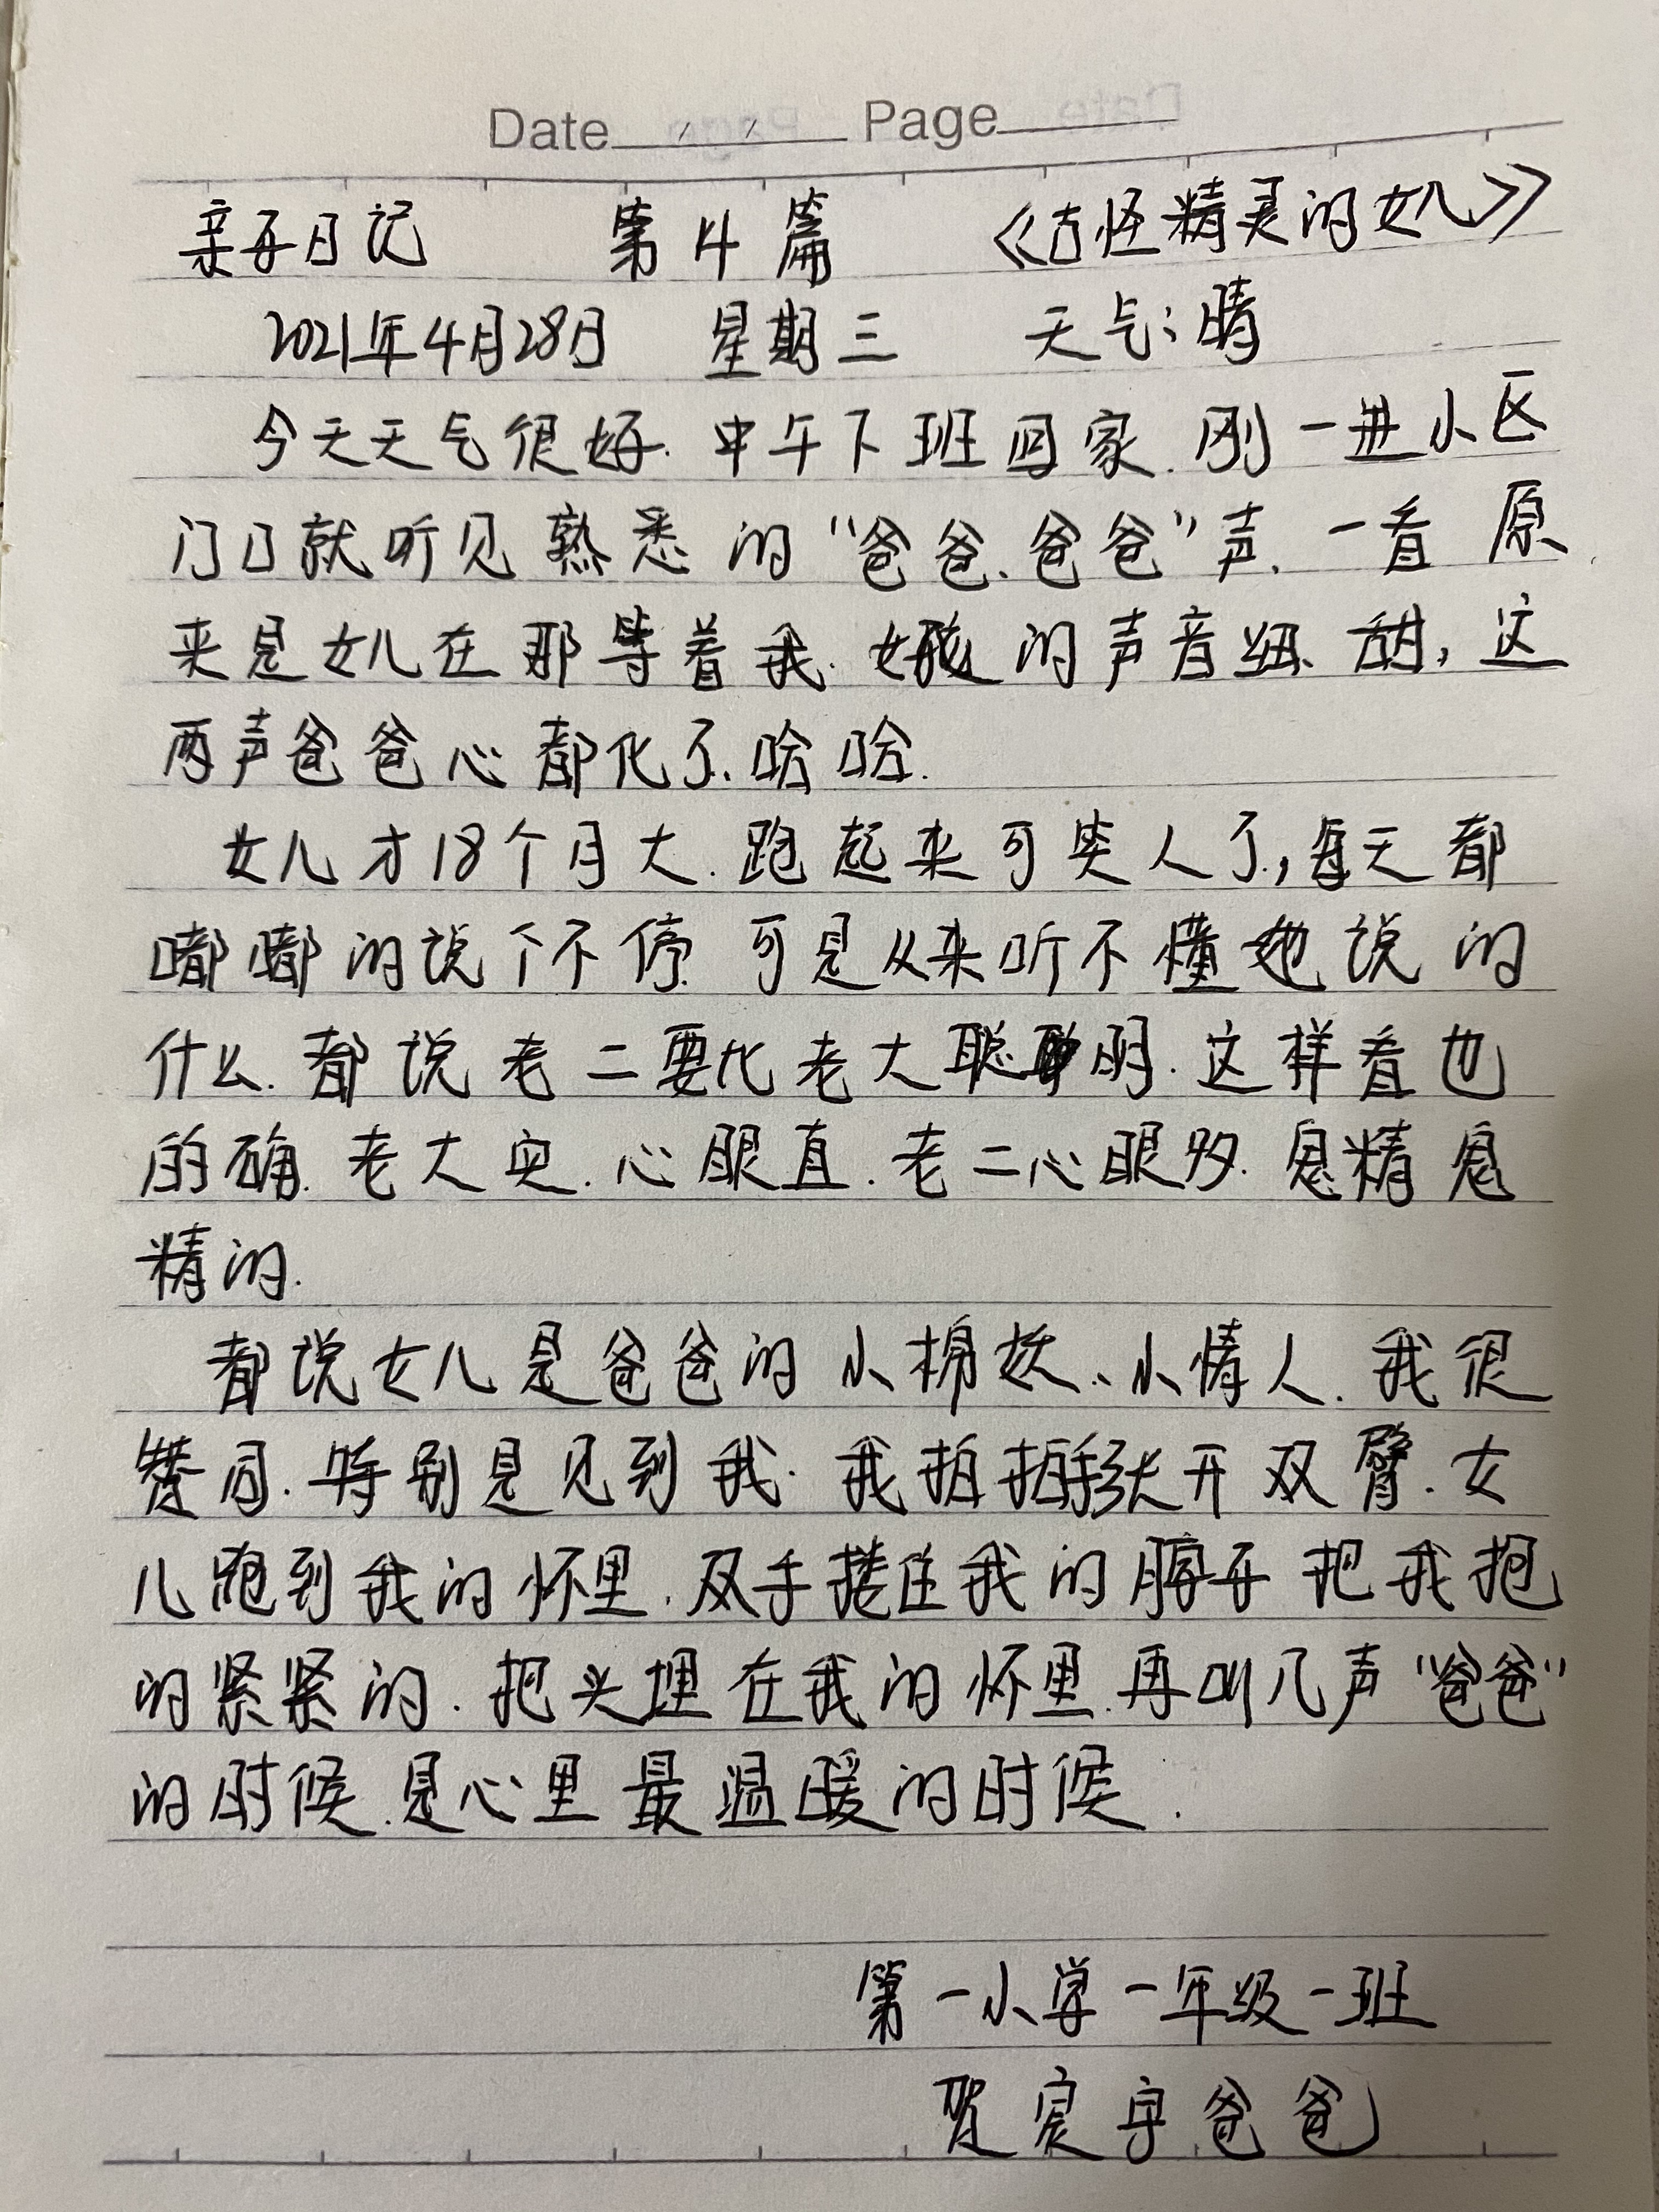 Date / / Page
亲子日记 第4篇 《古怪精灵的女儿》
2021年4月28日 星期三 天气:晴
今天天气很好.中午下班回家.刚一进小区
门口就听见熟悉的“爸爸.爸爸”声.一看原
来是女儿在那等着我.女孩的声音细、甜,这
两声爸爸心都化了.哈哈.
女儿才18个月大.跑起来可笑人了,每天都
嘟嘟的说个不停.可是从来听不懂她说的
什么.都说老二要比老大聪明.这样看也
的确.老大实.心眼直.老二心眼多.鬼精鬼
精的.
都说女儿是爸爸的小棉袄、小情人.我很
赞同.特别是见到我.我拍拍手张开双臂.女
儿跑到我的怀里.双手搂住我的脖子把我抱
的紧紧的.把头埋在我的怀里.再叫几声“爸爸”
的时候.是心里最温暖的时候.
第一小学一年级一班
贺宸宇爸爸